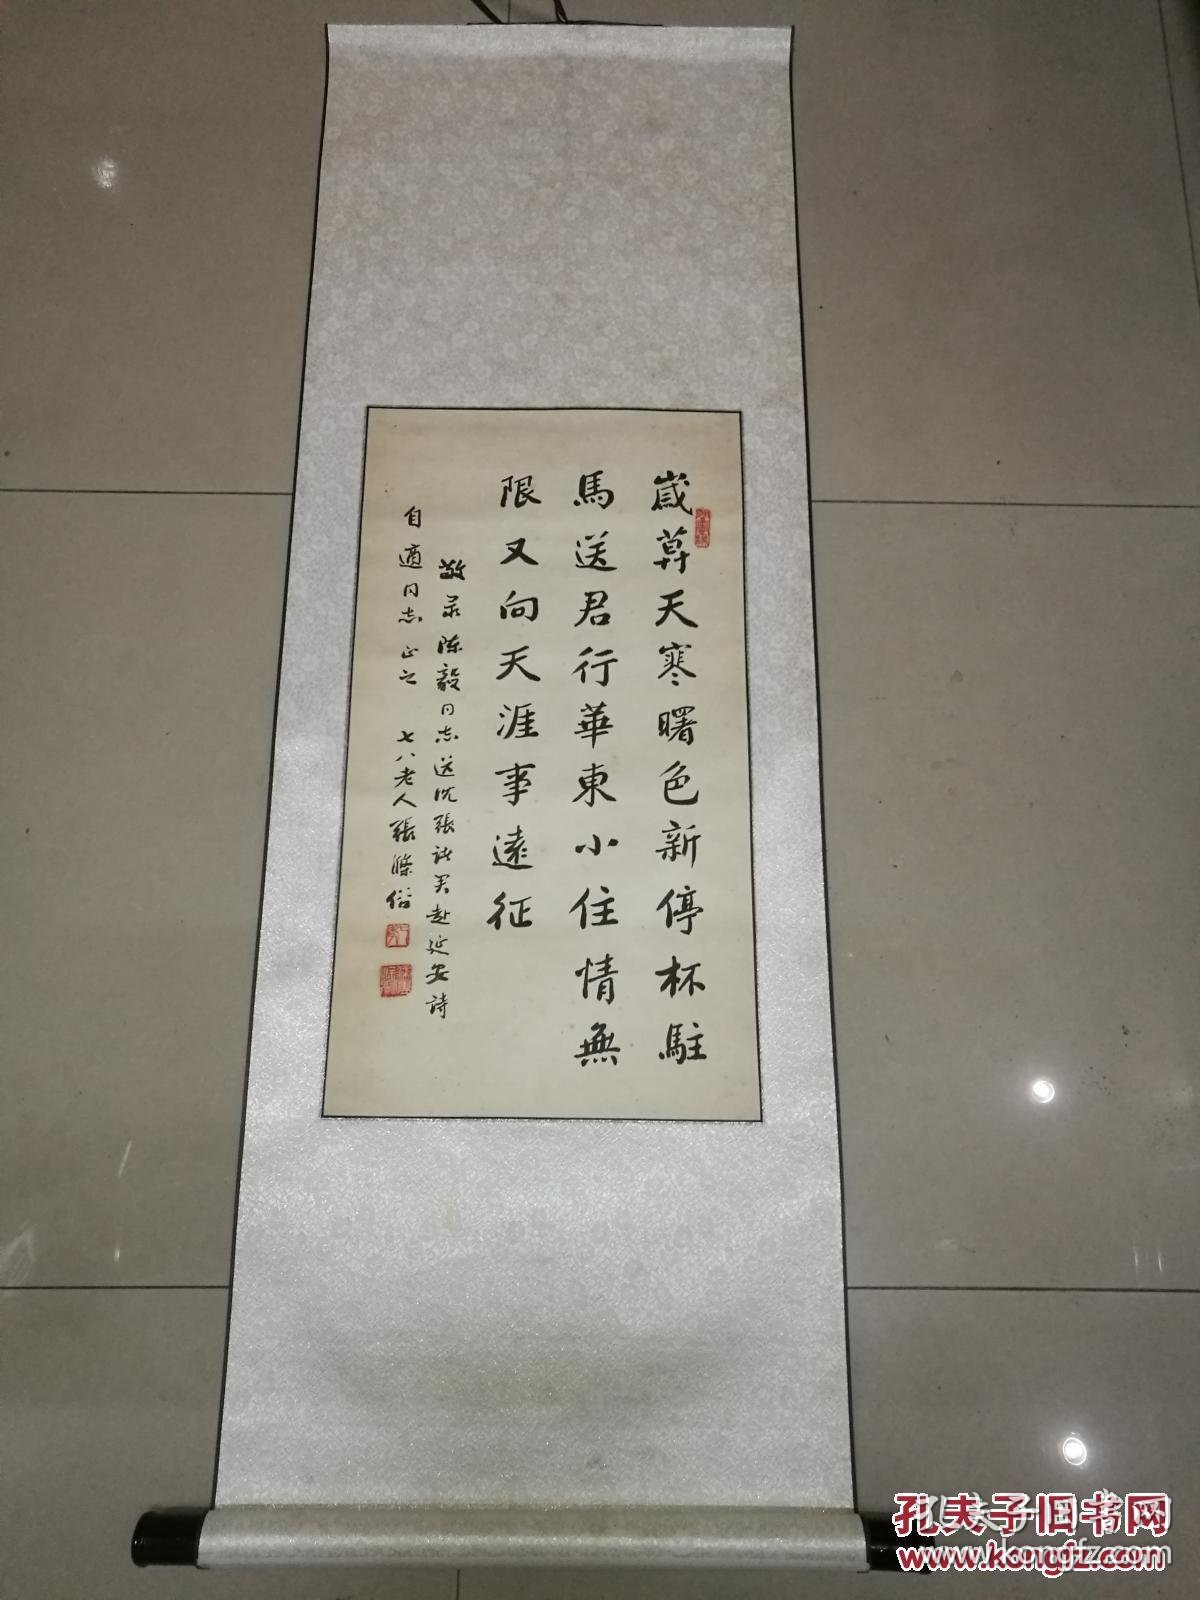 歲莫天寒曙色新停杯駐
馬送君行華東小住情無
限又向天涯事遠征
敬录陈毅同志送沈張诸君赴延安詩
自適同志正之 七八老人張滌俗
孔夫子旧书网
www.kongfz.com